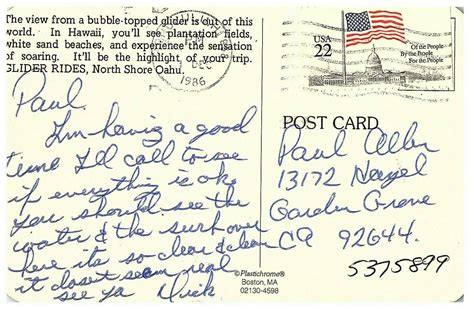 The view from a bubble-topped glider is out of this
world. In Hawaii, you'll see plantation fields,
white sand beaches, and experience the sensation
of soaring. It'll be the highlight of your trip.
GLIDER RIDES, North Shore Oahu.
DEC
1986
USA
22
Of the People
By the People
For the People
Paul
I'm having a good
time I'll call to see
if everything is ok
you should see the
water & the surf over
here its so clear & clean
it dosent seem real
see ya Dick
POST CARD
Paul
13172 Hazel
Garden Grove
CA 92644
5375899
©Plastichrome®
Boston, MA
02130-4598